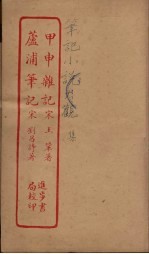 筆記小說大觀
甲申雜記宋王鞏著
蘆浦筆記宋劉昌詩著
進步書
局校印